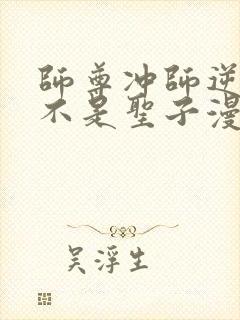 師尊冲師逆
不是聖子漫
吴浮生